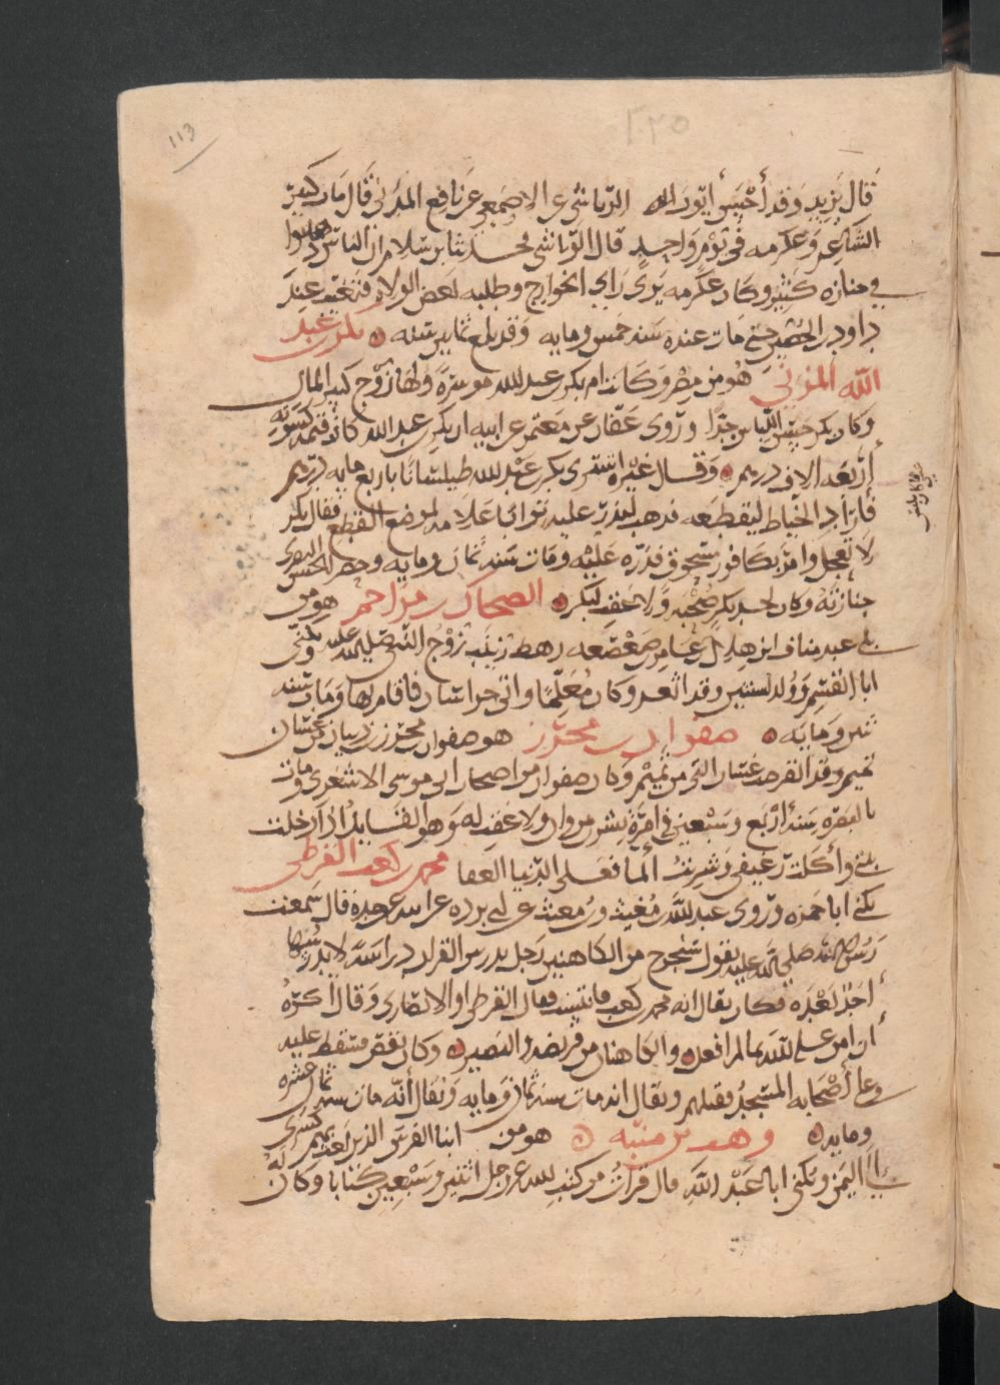 113
٢٢٥
قال يزيد وقد أحبس أيّوب الله الرياشي عن الاصمعي عن نافع المدني قال مات كثير
الشاعر وعكرمه في يوم واحد قال الرياشي فحدثنا ابن سلام ان الناس ذهبوا
في جنازه كثير وكان عكرمه يرى راي الخوارج وطلبه بعض الولاة فتغيب عند
داود بن الحصين حتى مات عنده سنه خمس ومايه وقد بلغ ثمانين سنه بكر بن عبد
الله المزني هو من مضر وكانت ام بكر بن عبد الله موسرة ولها زوج كثير المال
وكان بكر حسن اللباس جدا وروى عفان عن معتمر عن ابيه ان بكر بن عبد الله كانت قيمة كسوته
أربعه الاف درهم وقال غيره اشترى بكر بن عبد الله طيلسانا باربع مايه درهم
فأراد الخياط ليقطعه فذهب ليذر عليه ترابا علامه لموضع القطع فقال بكر
لا تعجل وامر بكافور فسحق فذره عليه ومات سنه ثمان ومايه وحضر الحسن البصري
جنازته وكان لجد بكر صحبه ولا عقب لبكر الضحاك بن مزاحم هو من
بني عبد مناف ابن هلال بن عامر بن صعصعه رهط زينب زوج النبي صلى الله عليه ويكنى
ابا القسم وولد لسنتين وقد اثغر وكان معلما واتى خراسان فاقام بها ومات سنه
ثنين ومايه صفوان بن محرز هو صفوان بن محرز بن زياد من غسان
تميم وقد انقرضت غسان التي من تميم وكان صفوان من اصحاب ابي موسى الاشعري ومات
بالبصره سنه أربع وسبعين في امرة بشر بن مروان ولا عقب له وهو القايل اذا دخلت
بيتي وأكلت رغيفي وشربت الما فعلى الدنيا العفا محمد بن كعب القرظي
يكنى ابا حمزه وروى عبد الله بن مغيث بن معتب عن ابي برده عن ابيه عن جده قال سمعت
رسول الله صلى الله عليه يقول سيخرج من الكاهنين رجل يدرس القران دراسة لا يدرسها
أحد بعده فكان يقال انه محمد بن كعب فاتيته فقال القرظي او الانصاري وقال أكره
أن امن على الله بما لم افعل والكاهنان من قريظه والنضير وكان يقص فسقط عليه
وعلى أصحابه المسجد فقتلهم ويقال انه مات سنه ثمان ومايه ويقال أنه مات سنه ثمان عشره
ومايه وهب بن منبه هو من ابنا الفرس الذين بعث بهم كسرى
الى اليمن ويكنى ابا عبد الله قال قرات من كتب الله عز وجل اثنين وسبعين كتابا وكان له